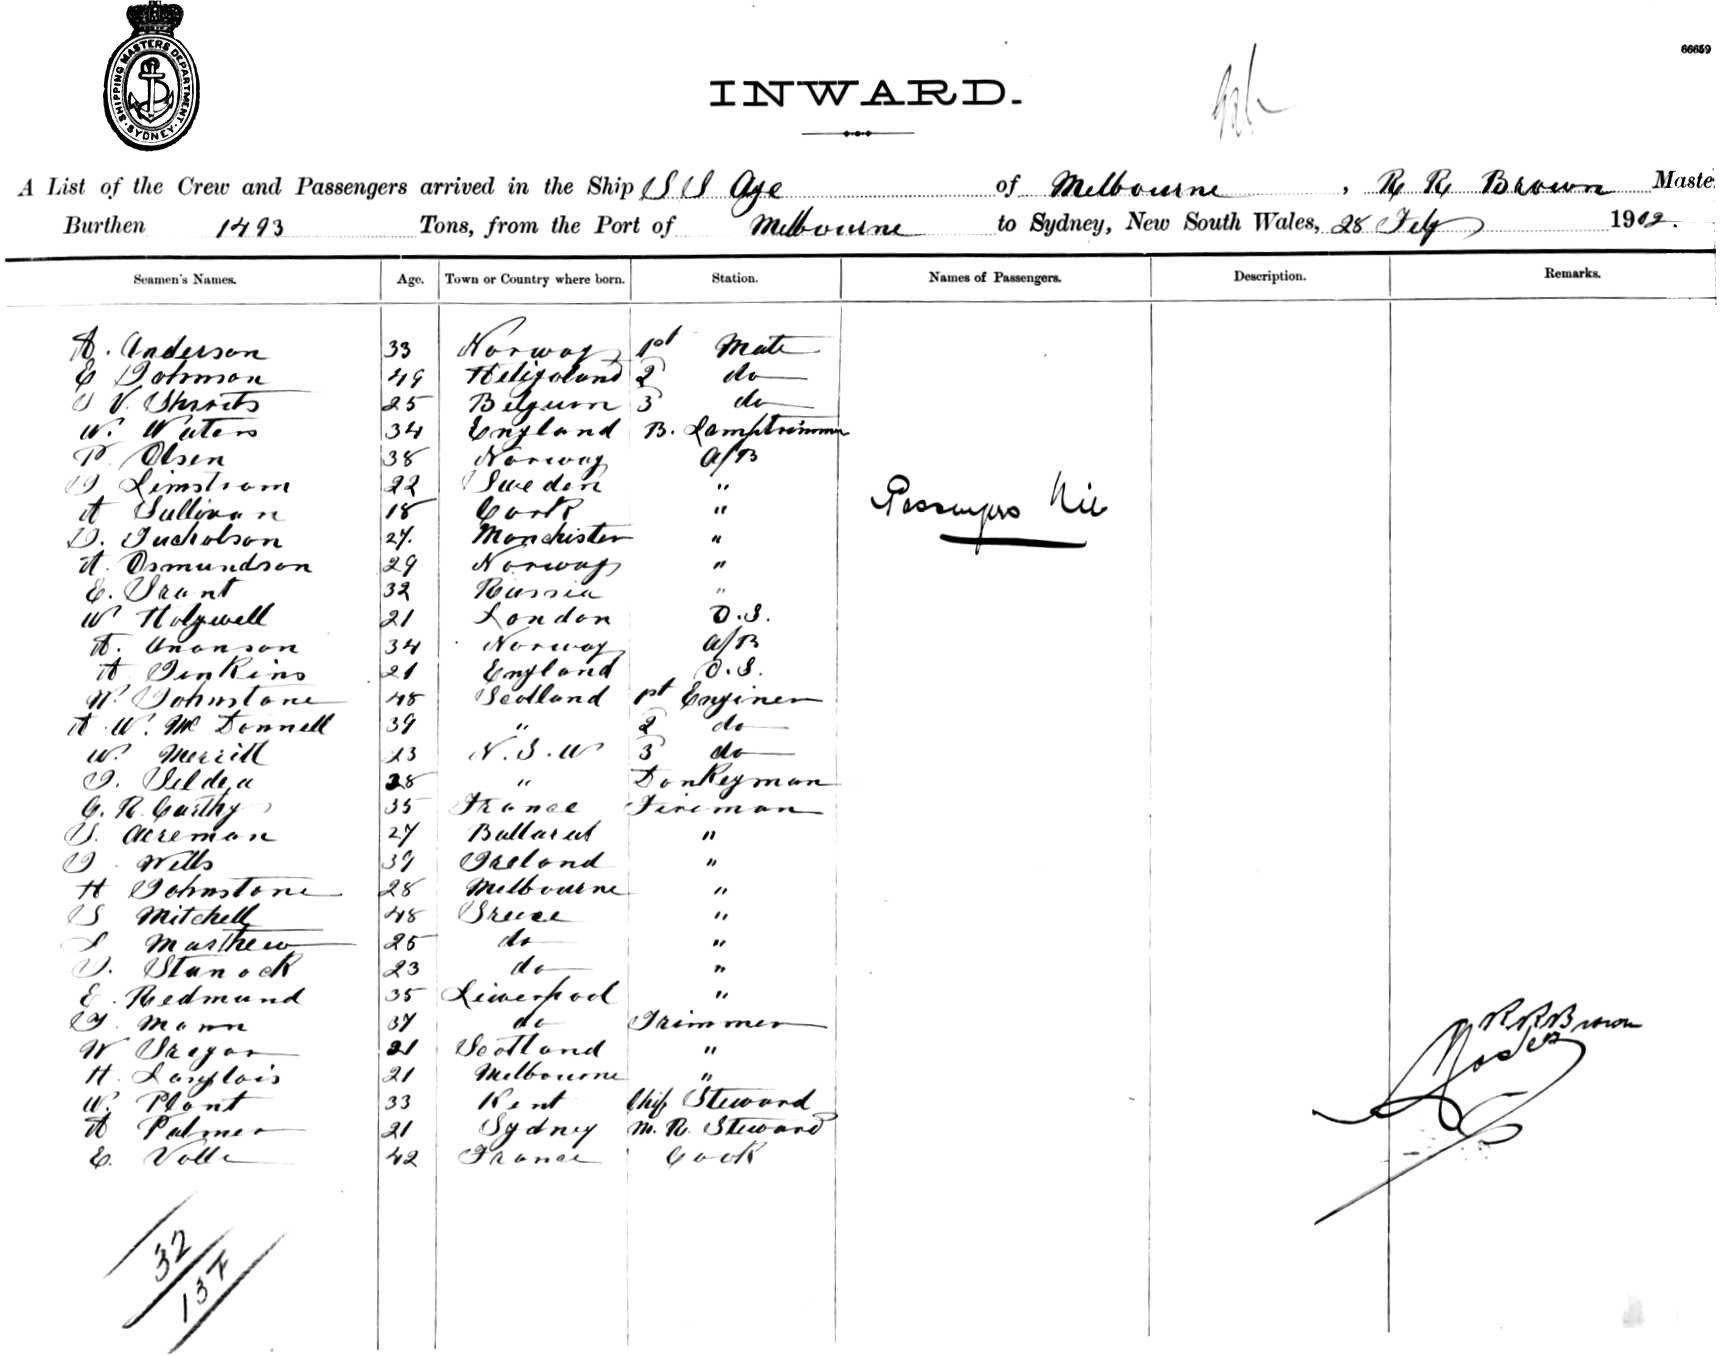 66659
SHIPPING MASTERS DEPARTMENT. SYDNEY.
INWARD.
A List of the Crew and Passengers arrived in the Ship S S Age of Melbourne, R R Brown Master
Burthen 1493 Tons, from the Port of Melbourne to Sydney, New South Wales, 28 Feby 1912.
Seamen's Names. Age. Town or Country where born. Station. Names of Passengers. Description. Remarks.
A. Anderson 33 Norway 1st Mate
E Johnson 49 Heligoland 2 do
25 Belguim 3 do
W. Waters 34 England B. Lamptrimmer
P. Olsen 38 Norway A/B
J Limstrom 22 Sweden "
A Sullivan 18 Cork "
Passengers Nil
27. Manchister "
A. Osmundson 29 Norway "
E. Grant 32 Russia "
W Holywell 21 London O.S.
A. Ananson 34 Norway A/B
A Jenkins 21 England O.S.
W. Johnstone 48 Scotland 1st Enginer
A W. Mc Donnell 39 " 2 do
W. Merrill 23 N.S.W 3 do
28 " Donkeyman
G. R. Carthy 35 France Fireman
S. Acreman 27 Ballarat "
J. Wells 39 Ireland "
H Johnstone 28 Melbourne "
G Mitchell 48 Greece "
Masthew 25 do "
Stanock 23 do "
E. Redmund 35 Liverpool "
Mann 37 do Trimmer
W Gregor 21 Scotland "
H. Langlois 21 Melbourne "
W. Plant 33 Kent Chif Steward
A Palmer 21 Sydney M. R. Steward
E. Volle 42 France Cook
R R Brown
Master
32
13 F